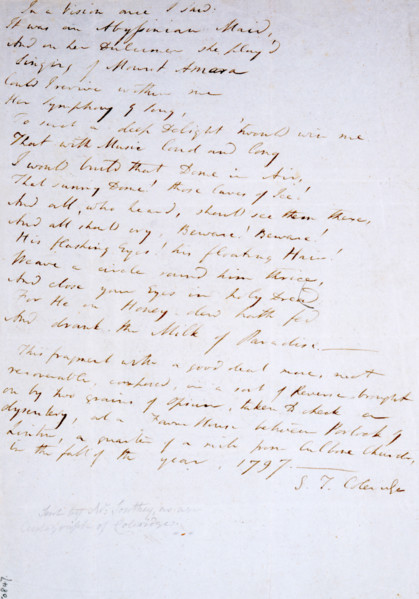 In a Vision once I saw:
It was an Abyssinian Maid,
And on her Dulcimer she play'd
Singing of Mount Amara
Could I revive within me
Her Symphony & Song,
To such a deep Delight 'twould win me
That with Music loud and long
I would build that Dome in Air,
That sunny Dome! those Caves of Ice!
And all, who heard, should see them there,
And all should cry, Beware! Beware!
His flashing Eyes! his floating Hair!
Weave a circle round him thrice,
And close your Eyes in holy Dread:
For He on Honey-dew hath fed
And drank the Milk of Paradise.—
This fragment with a good deal more, not
recoverable, composed, in a sort of Reverie brought
on by two grains of Opium, taken to check a
dysentery, at a Farm House between Porlock &
Linton, a quarter of a mile from Culbone Church,
in the fall of the year, 1797.—
S. T. Coleridge
Mr. Southey as an
Autograph of Coleridge